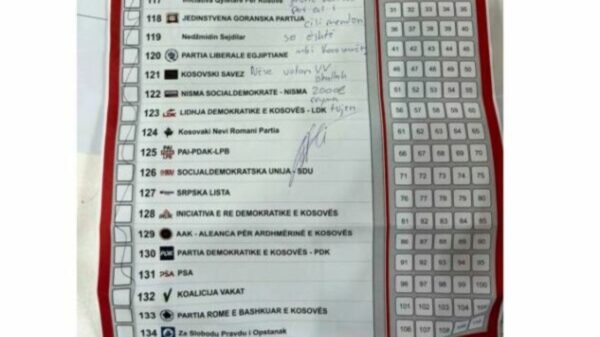 117 Iniciativa Qytetare Për Kosovë
118 JEDINSTVENA GORANSKA PARTIJA
119 Nedžmidin Sejdilar
120 PARTIA LIBERALE EGJIPTIANE
121 KOSOVSKI SAVEZ
122 NISMA SOCIALDEMOKRATE - NISMA
123 LDK LIDHJA DEMOKRATIKE E KOSOVËS - LDK
124 Kosovaki Nevi Romani Partia
125 PAI-PDAK-LPB
126 SOCIJALDEMOKRATSKA UNIJA - SDU
127 SRPSKA LISTA
128 INICIATIVA E RE DEMOKRATIKE E KOSOVËS
129 AAK - ALEANCA PËR ARDHMËRINË E KOSOVËS
130 PDK PARTIA DEMOKRATIKE E KOSOVËS - PDK
131 PSA PSA
132 KOALICIJA VAKAT
133 PARTIA ROME E BASHKUAR E KOSOVËS
134 Za Slobodu Pravdu i Opstanak
cili mendon
se është
mbi Kosovën
votan VV
2000€
31 32 33 34 35
36 37 38 39 40
41 42 43 44 45
46 47 48 49 50
51 52 53 54 55
56 57 58 59 60
61 62 63 64 65
66 67 68 69 70
71 72 73 74 75
76 77 78 79 80
81 82 83 84 85
86 87 88 89 90
91 92 93 94 95
96 97 98 99 100
101 102 103 104 105
106 108 109 110